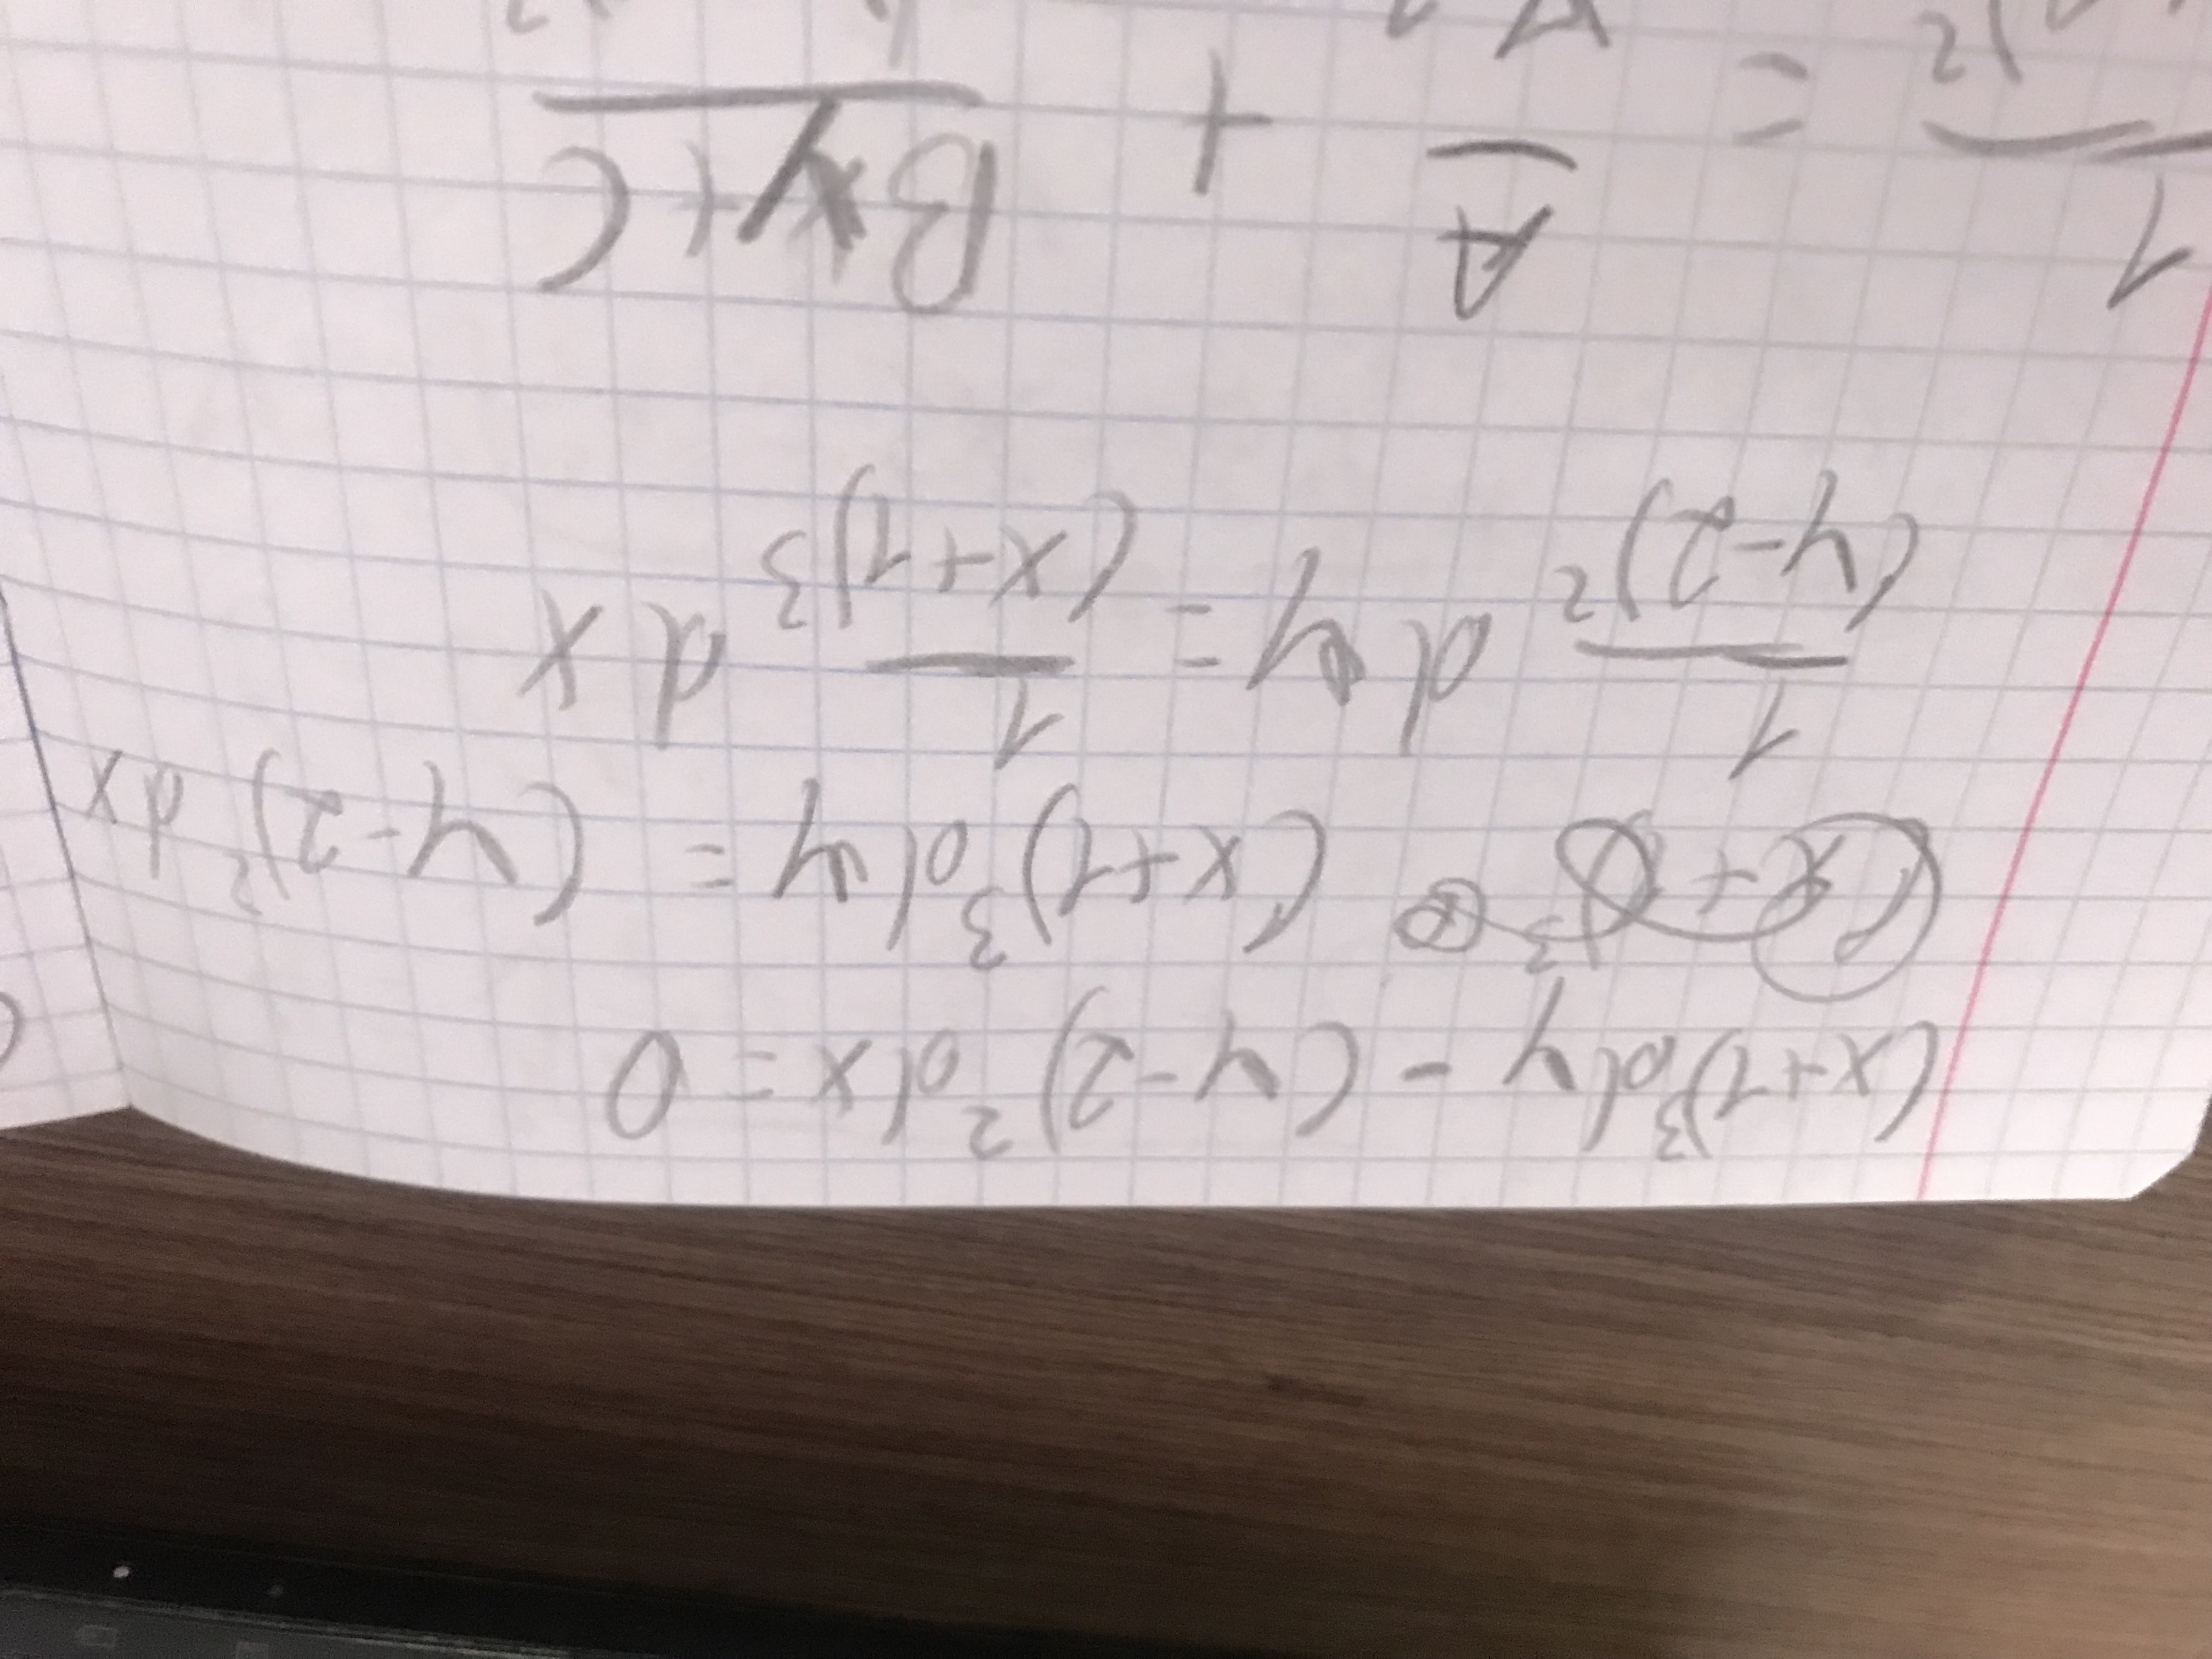 (x+1)³dy - (y-2)²dx = 0
(x+1)³dy = (y-2)²dx
1/(y-2)² dy = 1/(x+1)³ dx
1 = A + By+C